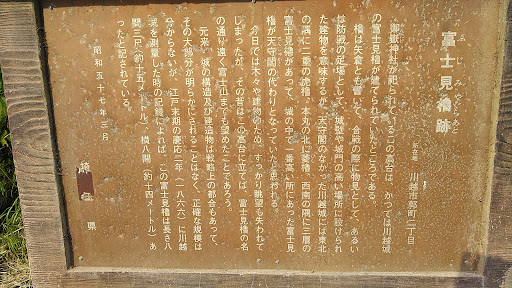 富士見櫓跡
ふじみやぐらあと
所在地 川越市郭町二丁目
御嶽神社が祀られているこの高台は、かつては川越城
の富士見櫓が建てられていたところである。
櫓は矢倉とも書いて、合戦の際に物見として、あるい
は防戦の足場として、城壁や城門の高い場所に設けられ
た建物を意味するが、天守閣のなかった川越城には東北
の隅に二重の虎櫓、本丸の北に菱櫓、西南の隅に三層の
富士見櫓があって、城の中で一番高い所にあった富士見
櫓が天守閣の代わりとなっていたと思われる。
今日では木々や建物のため、すっかり眺望も失われて
しまったが、その昔はこの高台に立てば、富士見櫓の名
の通り遠く富士山までも望めたことであろう。
元来、城の構造及び建造物は戦略上の都合もあって、
その大部分が明らかにされることはなく、正確な規模は
分からないが、江戸末期の慶応二年(一八六六)に川越
城を測量した時の記録によれば、この富士見櫓は長さ八
間三尺(約十五メートル)、横八間(約十四メートル)あ
ったと記されている。
昭和五十七年三月
埼玉県